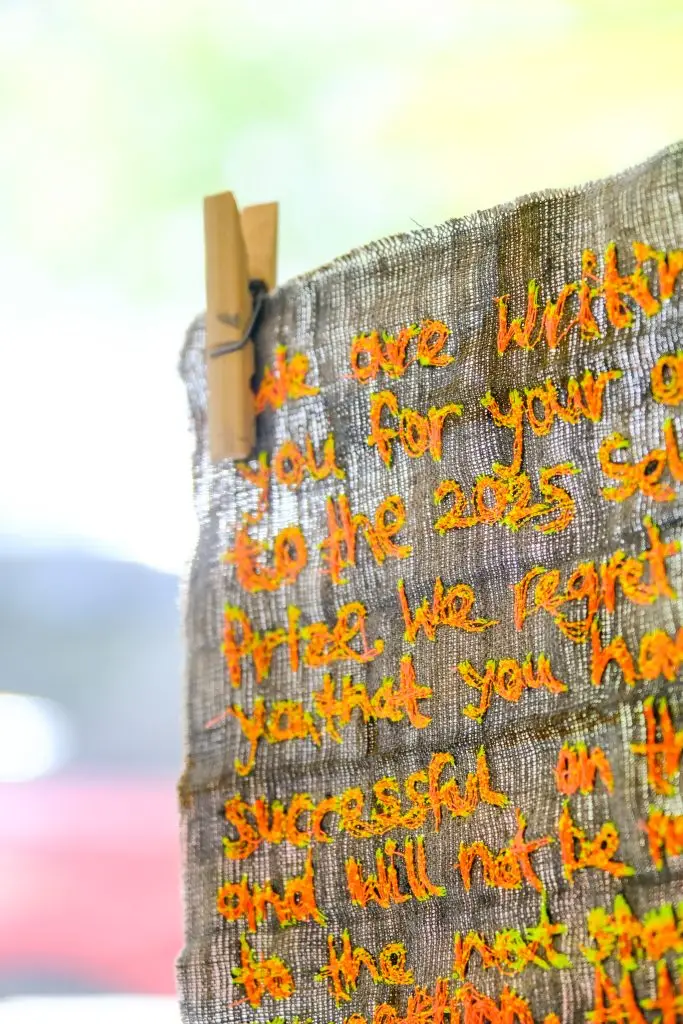 We are writin
you for your a
to the 2025 Sel
Prize, we regret
you that you hav
successful on th
and will not be
to the next